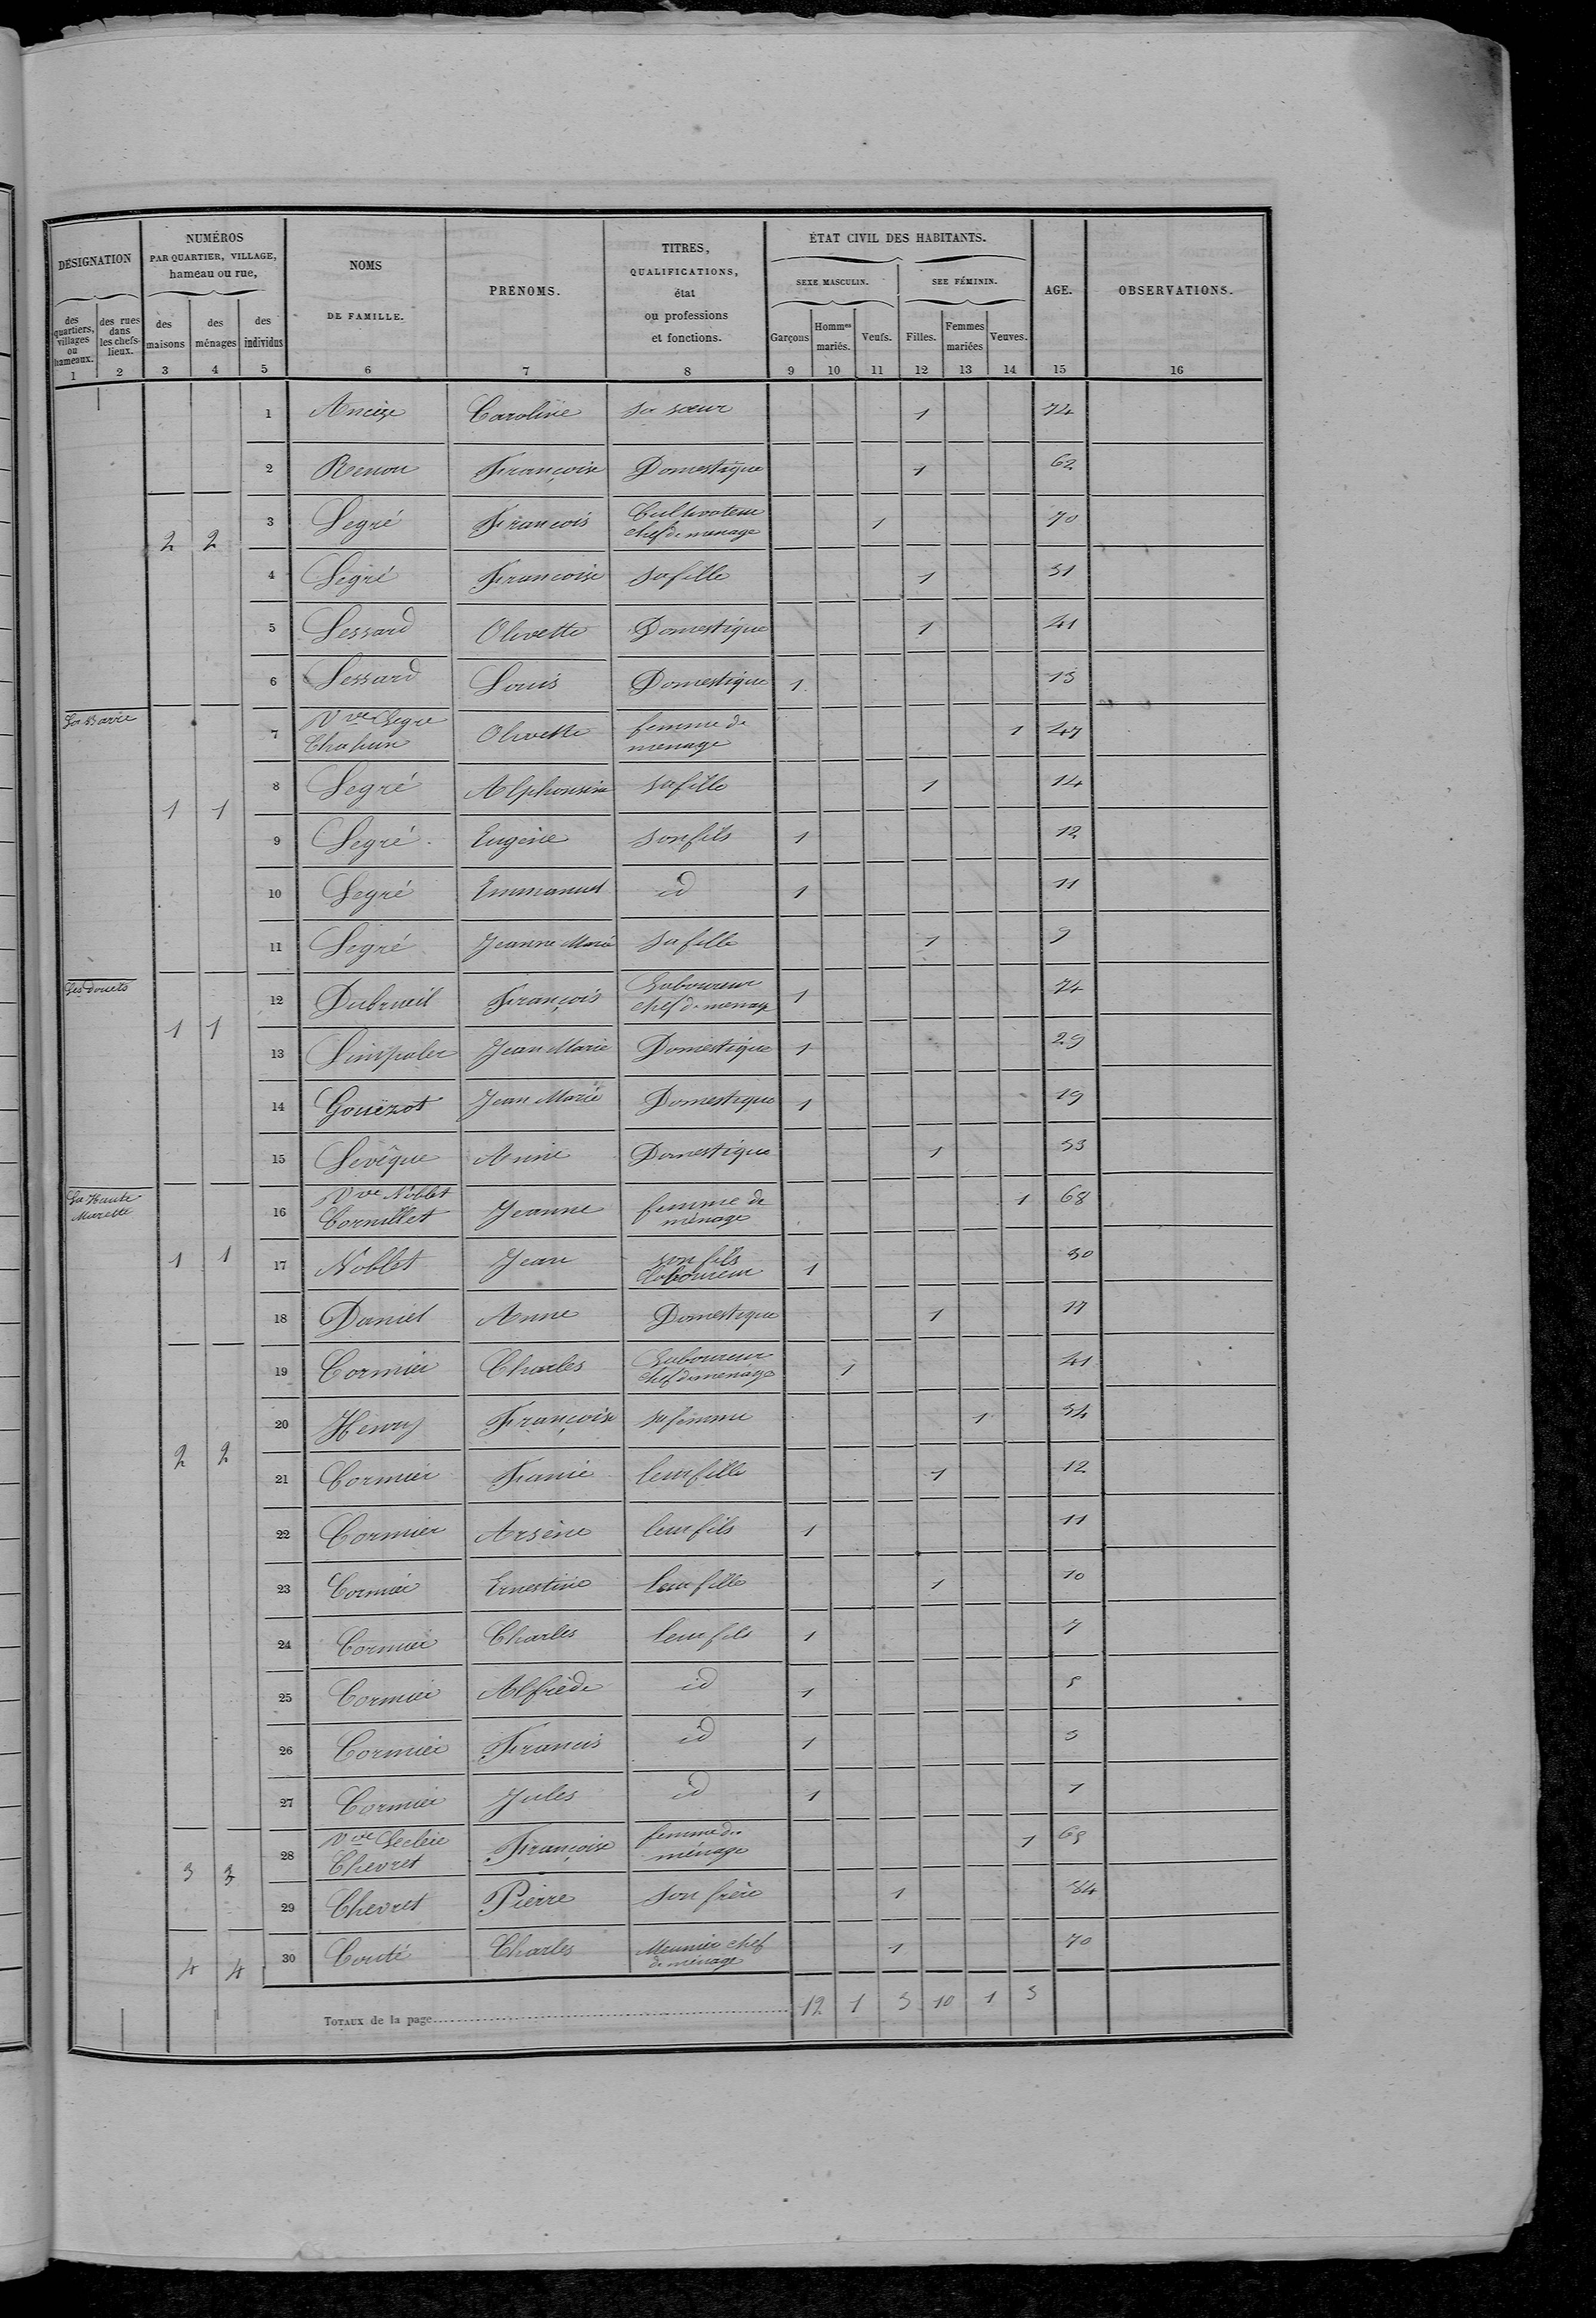 DÉSIGNATION
NUMÉROS PAR QUARTIER, VILLAGE, hameau ou rue,
NOMS DE FAMILLE.
PRÉNOMS.
TITRES, QUALIFICATIONS, état ou professions et fonctions.
ÉTAT CIVIL DES HABITANTS.
SEXE MASCULIN.
SEE FÉMININ.
AGE.
OBSERVATIONS.
des quartiers, villages ou hameaux.
des rues dans les chefs-lieux.
des maisons
des ménages
des individus
Garçons
Hommes mariés.
Veufs.
Filles.
Femmes mariées
Veuves.
1 2 3 4 5 6 7 8 9 10 11 12 13 14 15 16
1 Caroline sa sœur 1 74
2 Renou Françoise Domestique 1 62
2 2 3 Segré François Cultivateur chef de menage 1 70
4 Segré Françoise sa fille 1 31
5 Lessard Olivette Domestique 1 41
6 Lessard Louis Domestique 1 13
7 Vve Segre Olivette femme de menage 1 47
1 1 8 Segré Alphonsine sa fille 1 14
9 Segré Eugène son fils 1 12
10 Segré Emmanuel id 1 11
11 Segré Jeanne Marie sa fille 1 9
Les douets 12 Dubrueil François Laboureur chef de menage 1 74
1 1 13 Jean Marie Domestique 1 29
14 Gouëzot Jean Marie Domestique 1 19
15 Levêque Anne Domestique 1 53
La Haute Murette 16 Vve Noblet Cornillet Jeanne femme de ménage 1 68
1 1 17 Noblet Jean son fils Laboureur 1 30
18 Daniel Anne Domestique 1 17
19 Cormier Charles Laboureur chef de ménage 1 41
20 Henry Françoise sa femme 1 34
2 2 21 Cormier leur fille 1 12
22 Cormier Arsène leur fils 1 11
23 Cormier Ernestine leur fille 1 10
24 Cormier Charles leur fils 1 7
25 Cormier Alfrède id 1 5
26 Cormier Francis id 1 3
27 Cormier Jules id 1 1
28 Vve Chevret Françoise femme de ménage 1 65
3 3 29 Chevret Pierre son frère 1
4 4 30 Couté Charles Meunier chef de ménage 1 70
TOTAUX de la page 12 1 3 10 1 3